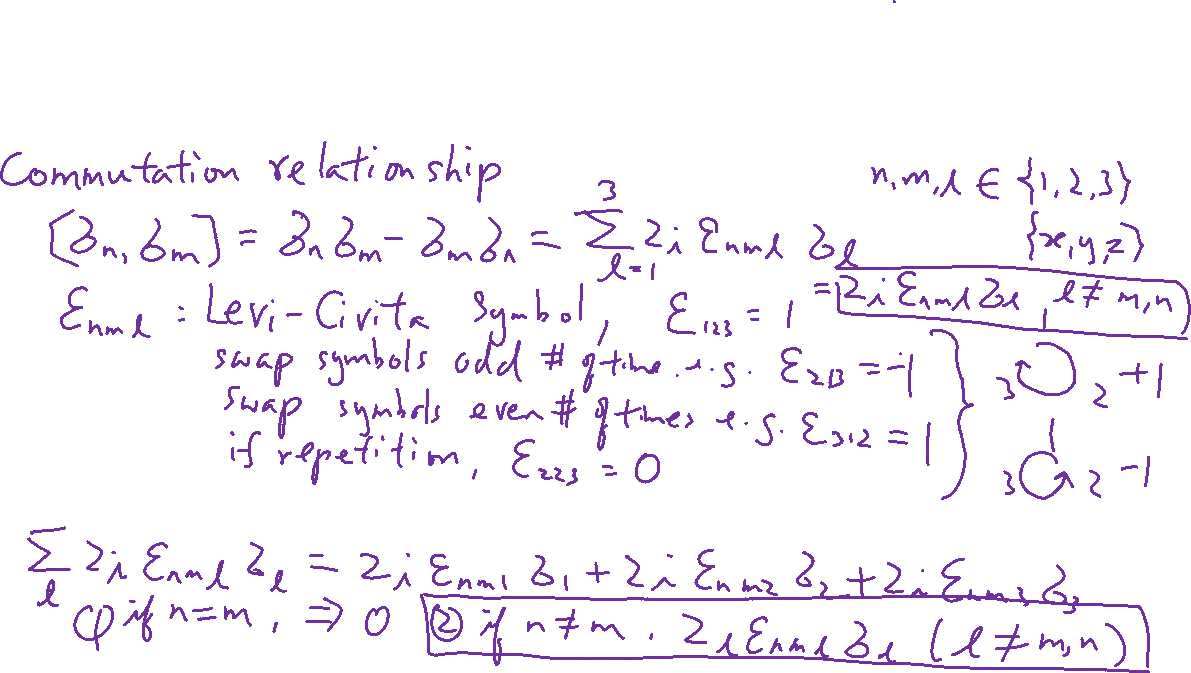 Commutation relationship
n, m, l ∈ {1, 2, 3}
{x, y, z}
[σn, σm] = σn σm - σm σn = Σ_{l=1}^{3} 2i εnml σl
= 2i εnml σl, l ≠ m, n
εnml : Levi-Civita Symbol, ε123 = 1
swap symbols odd # of time. e.g. ε213 = -1
swap symbols even # of times e.g. ε312 = 1
if repetition, ε223 = 0
1 3 2 +1
1 3 2 -1
Σ_l 2i εnml σl = 2i εnm1 σ1 + 2i εnm2 σ2 + 2i εnm3 σ3
① if n=m, ⇒ 0 ② if n ≠ m. 2i εnml σl (l ≠ m, n)